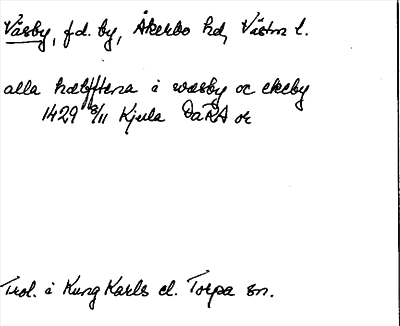 Väsby, f.d. by, Åkerbo hd, Västm l.
alla hælffterna i wæsby oc ekeby
1429 8/11 Kjula DaRA or
Trol. i Kung Karls el. Torpa sn.